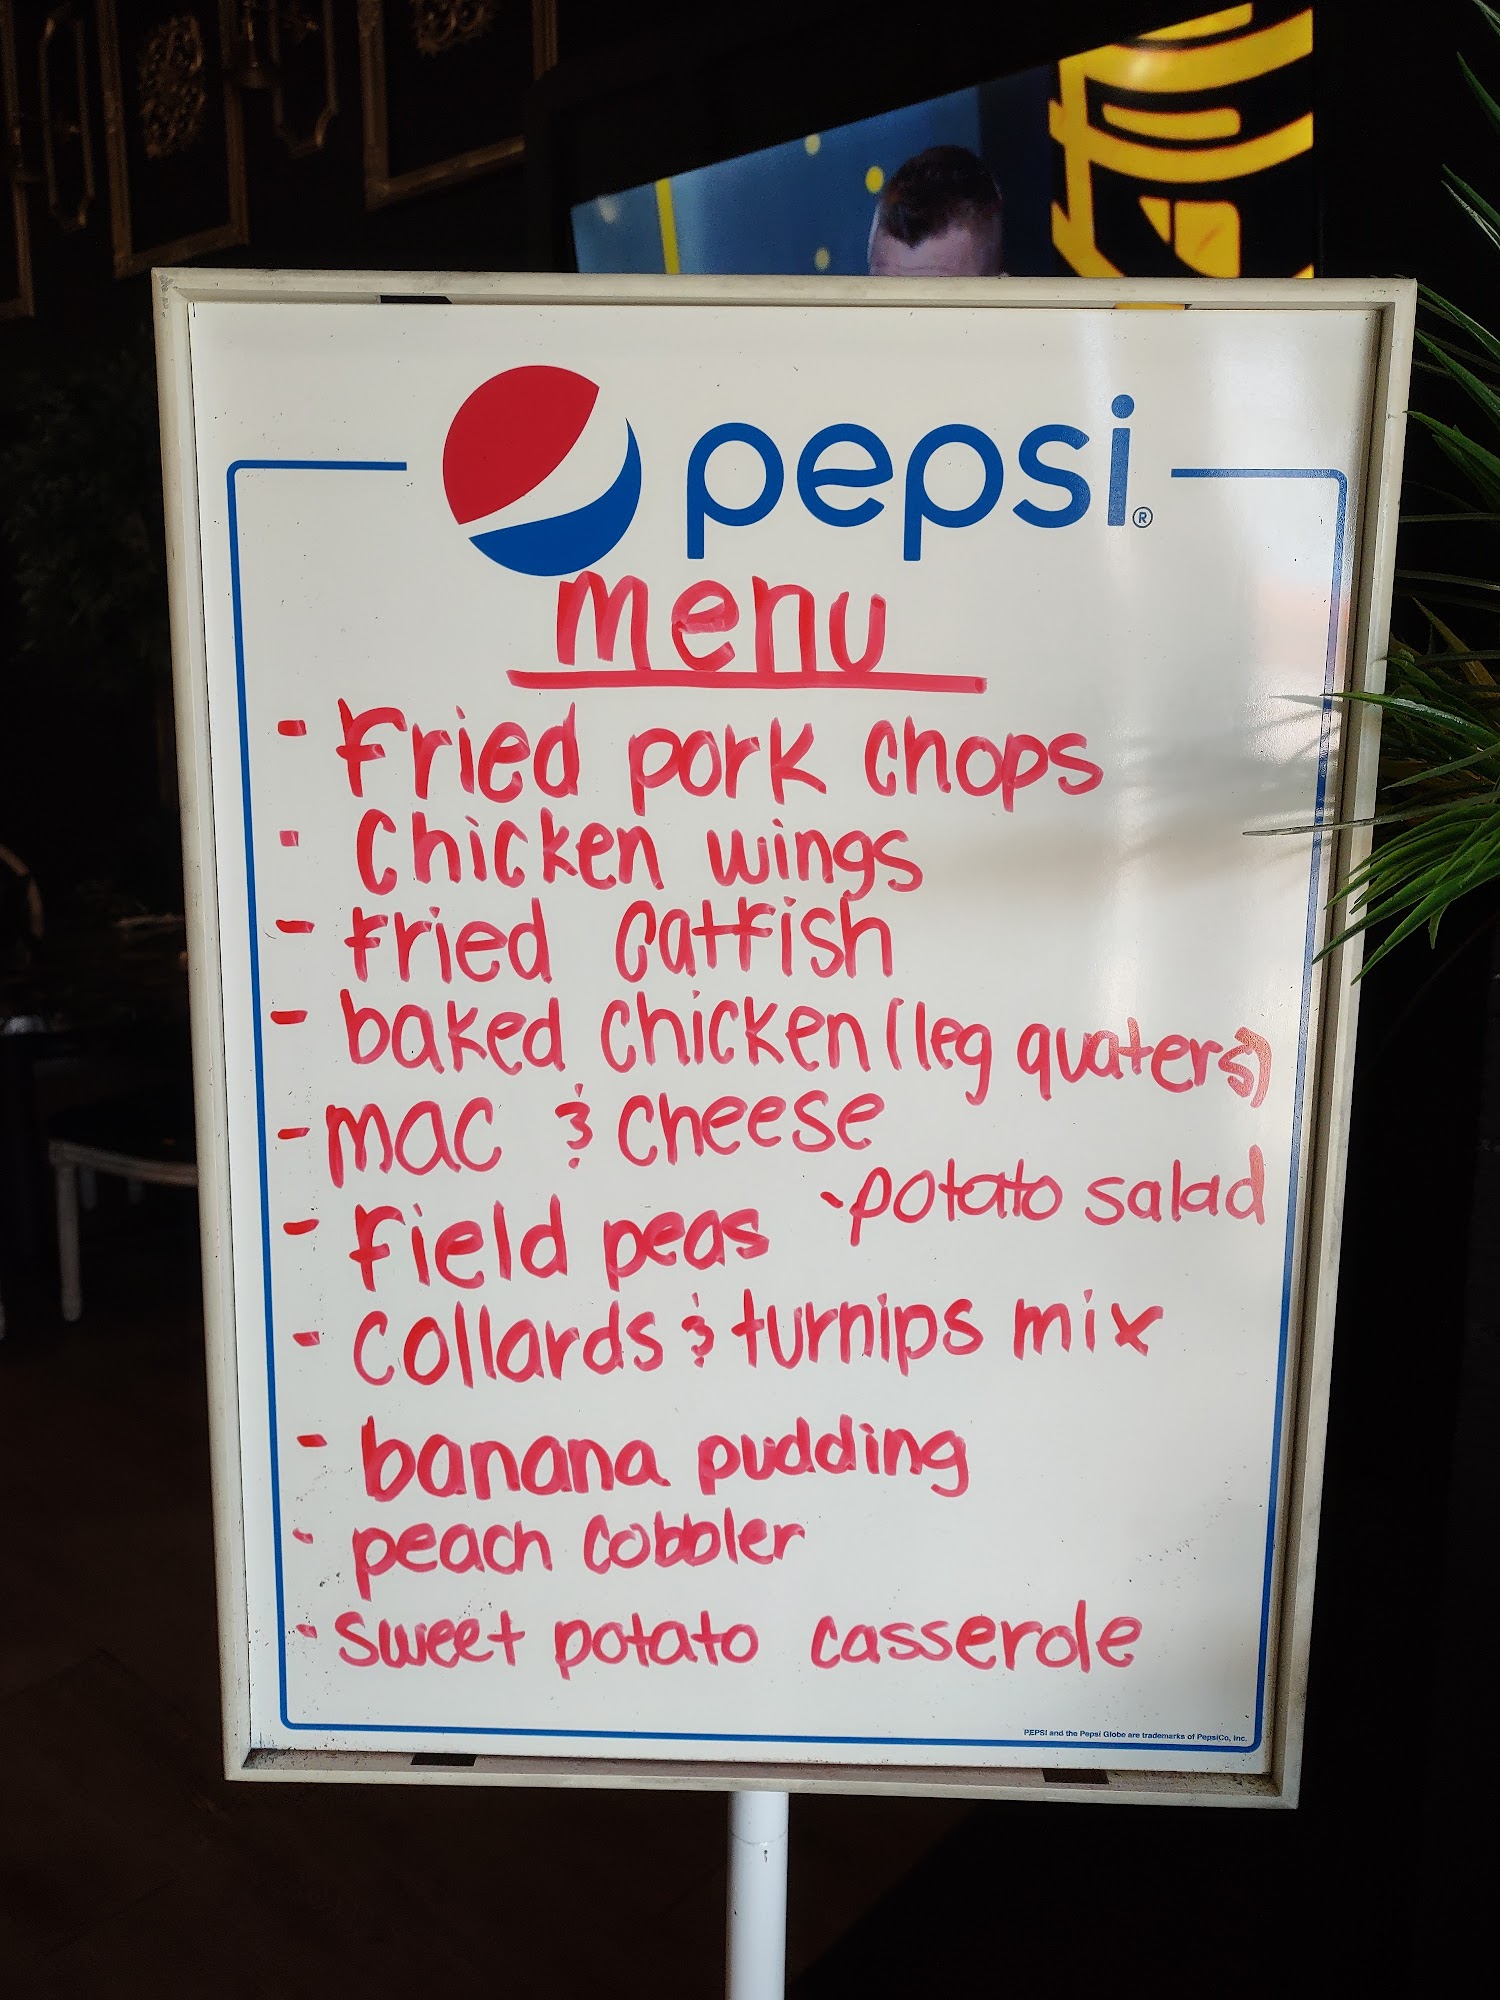 pepsi®
menu
- Fried pork chops
- Chicken wings
- Fried catfish
- baked chicken (leg quaters)
- mac & cheese
- Field peas
- potato salad
- Collards & turnips mix
- banana pudding
- peach cobbler
- sweet potato casserole
PEPSI and the Pepsi Globe are trademarks of PepsiCo, Inc.